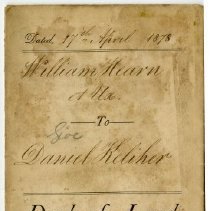 Dated, 17th April 1878
William Hearn
& Ux.
To
Daniel Keliher
Deed of Land